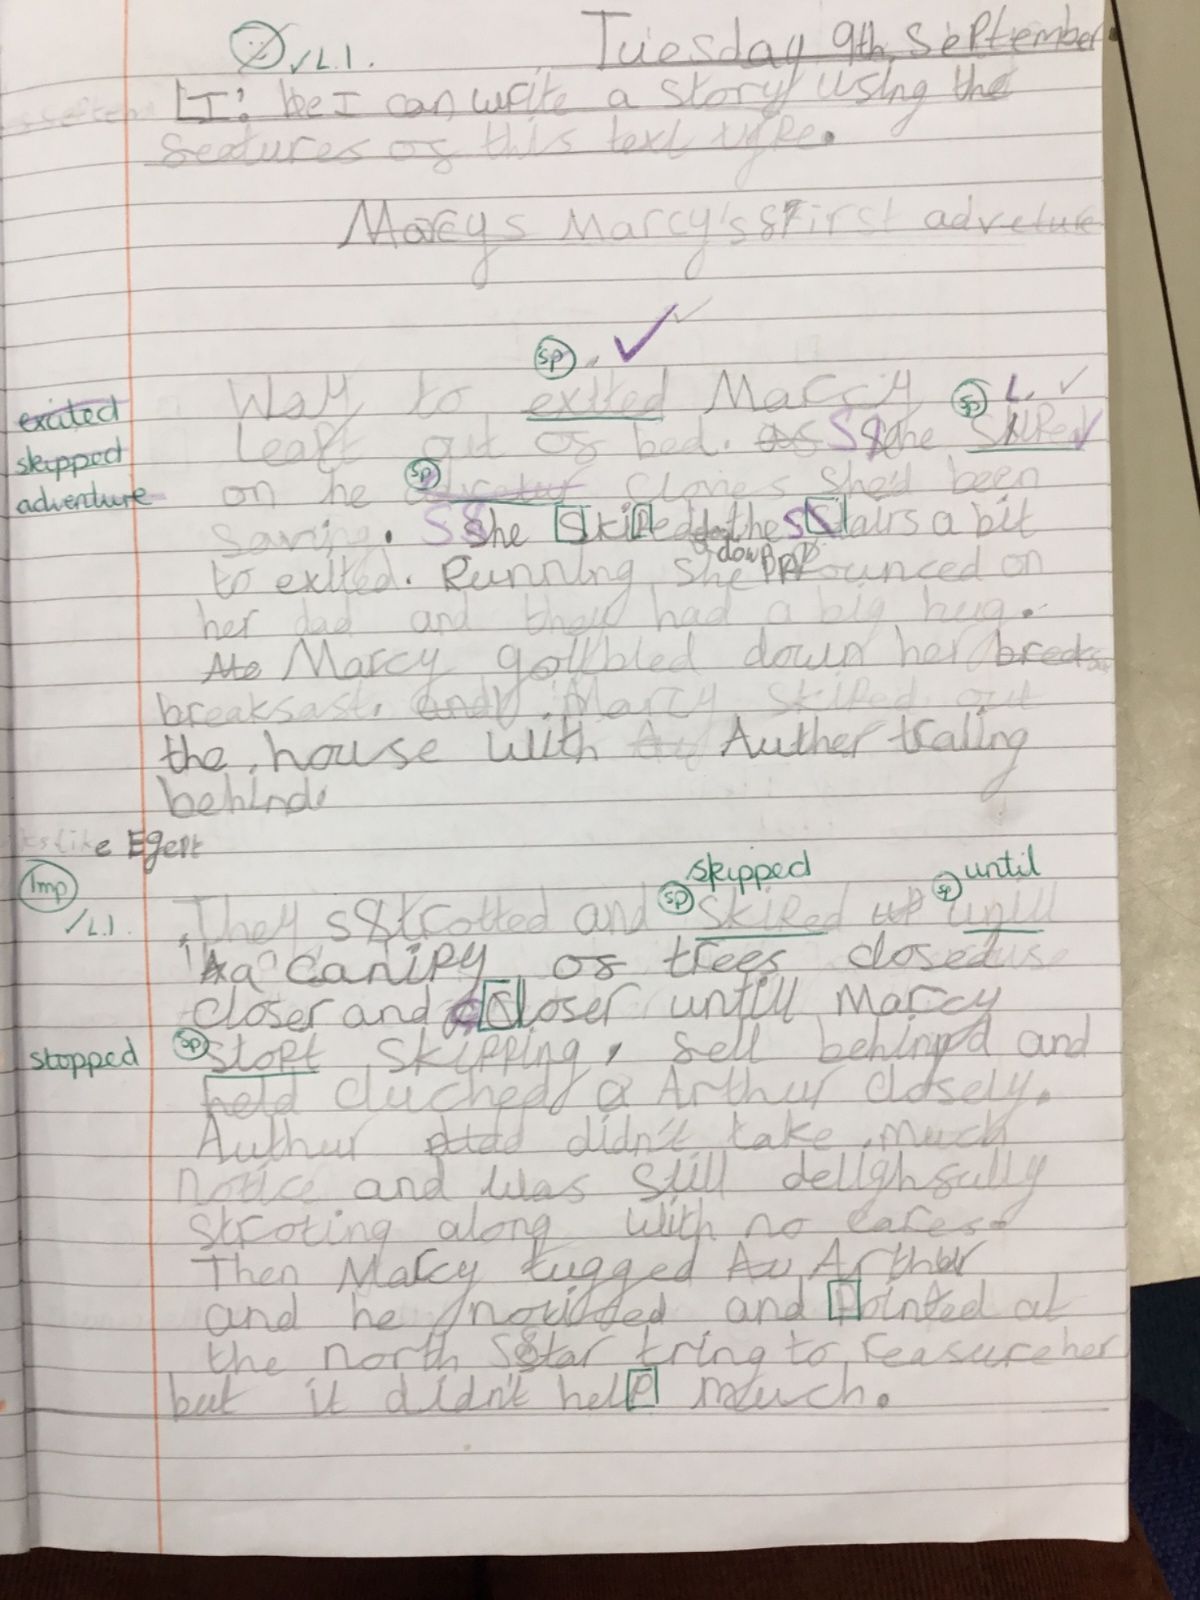 ✓L.I.
Tuesday 9th September
LI: I can write a story using the
seatures os this text type.
Marcys Marcy's first adveture
sp
Way to exited Marcy
exited
sp
Leapt out os bed. She
skipped
sp
adventure
on he clothes she'd been
saving. She skiped down the stairs a bit
to exited. Running she pounced on
her dad and they had a big hug.
Marcy gollbled down her
breaksast. Marcy skiped out
the house with Auther traling
behind.
like Egept
Imp
✓L.I.
skipped
until
sp
sp
They strotted and skiped up untill
a canipy os trees closed
closer and closer untill Marcy
stopped
sp
stopt skipping, sell behind and
held cluched Arthur closely.
Authur didn't take much
notice and was still delighsully
stroting along with no cares.
Then Marcy tugged Arthur
and he notided and pointed at
the north Star tring to reasure her
but it didn't help much.